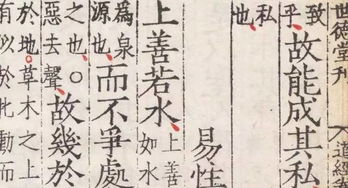 世德堂刊
道經
致
乎故能成其私
私
也
易性
上善若水上善
如水
爲泉
源也而不爭處
之也○
惡去聲故幾於
於地草木之上
有以於牝動而